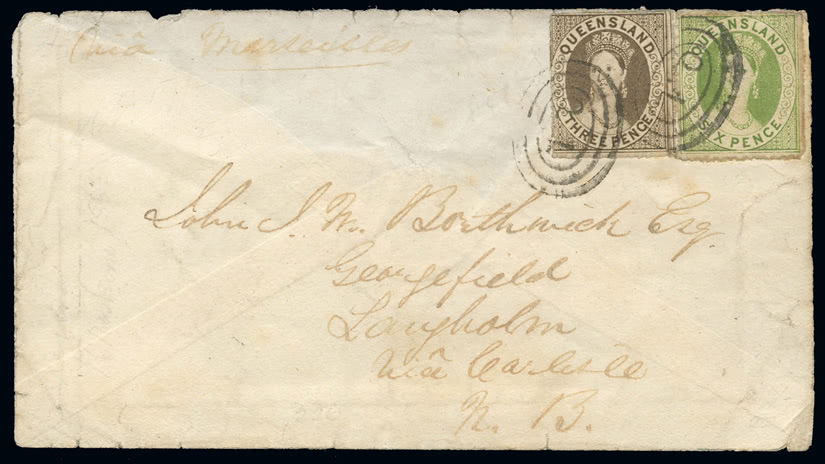 Viâ Marseilles
QUEENSLAND
THREE PENCE
QUEENSLAND
X PENCE
John J. W. Borthwick Esq.
Georgefield
Langholm
Viâ Carlisle
N. B.